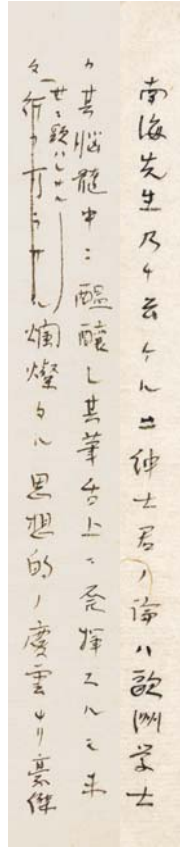 南海先生乃チ云ケルニ紳士君ノ論ハ歐洲学士
カ其脳髄中ニ醞醸シ其筆舌上ニ発揮スルモ未
タ世ニ顕ハレサル爛燦タル思想的ノ慶雲ナリ豪傑